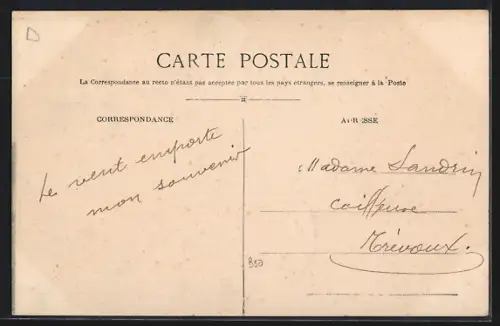 D
CARTE POSTALE
La Correspondance au recto n'étant pas acceptée par tous les pays étrangers, se renseigner à la Poste
CORRESPONDANCE
Le vent emporte
mon souvenir
ADRESSE
Madame Landrin
coiffeuse
Trévoux.
B50